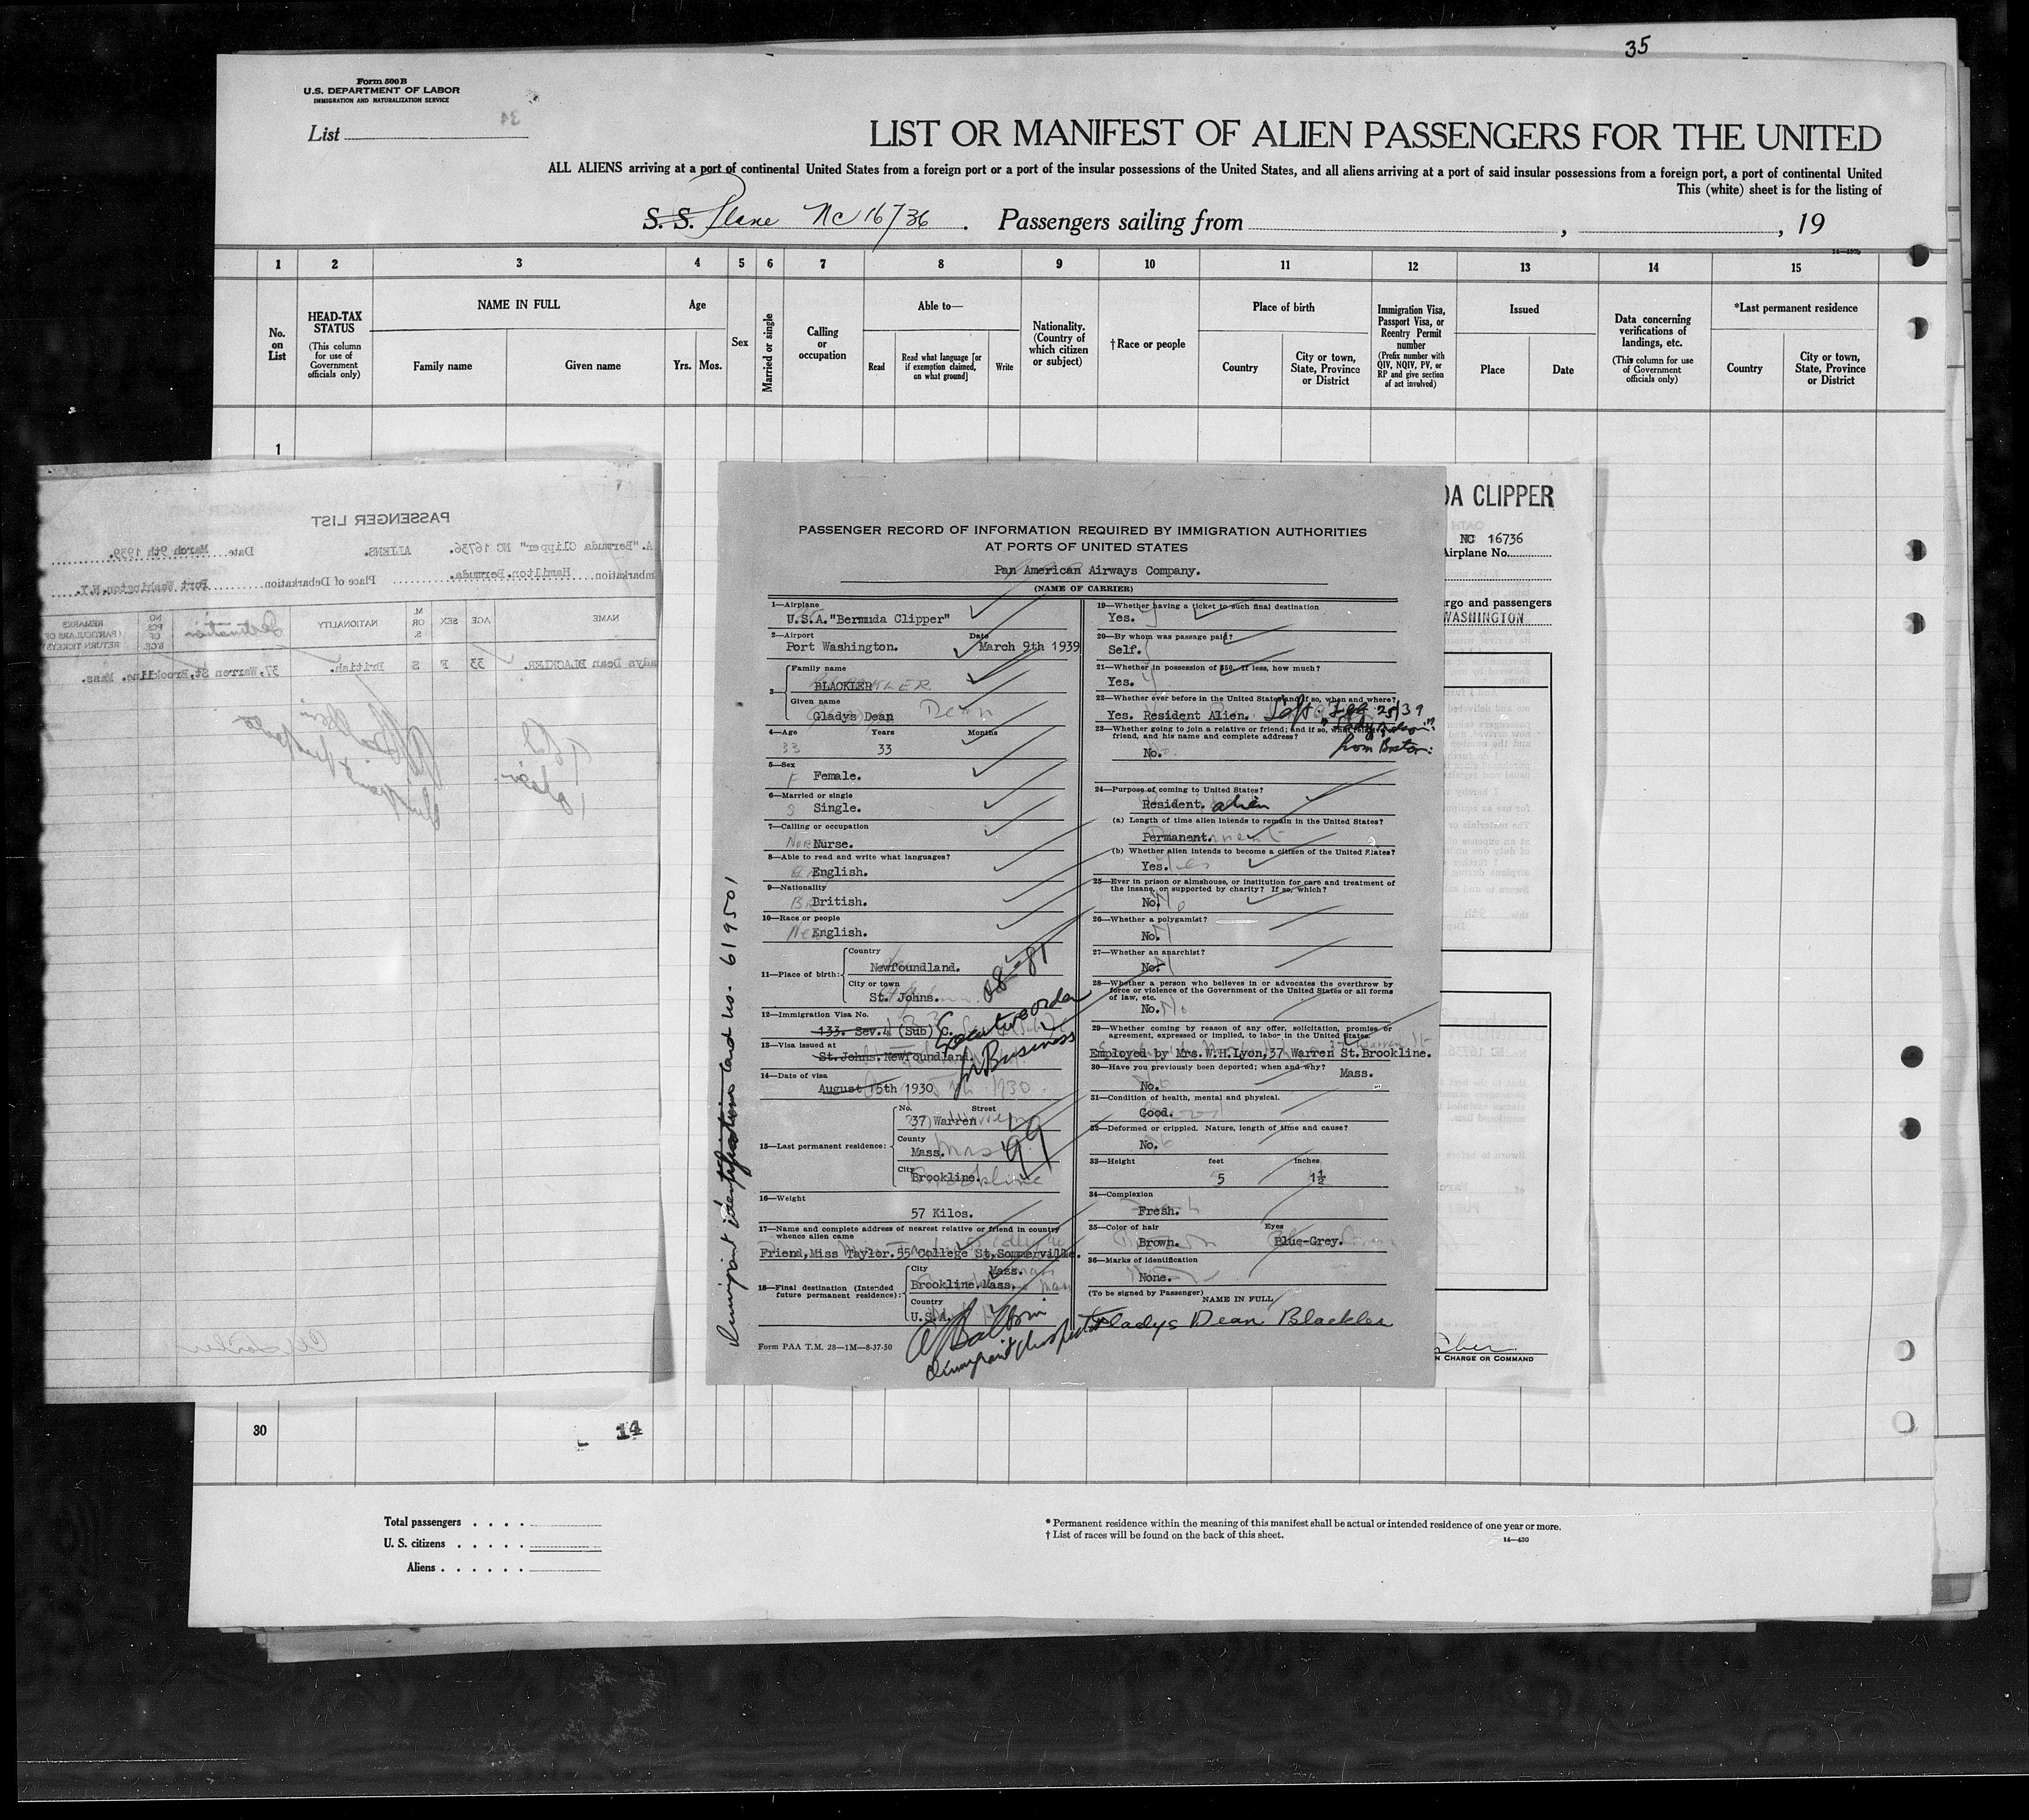 35
Form 500 B
U.S. DEPARTMENT OF LABOR
IMMIGRATION AND NATURALIZATION SERVICE
List
34
LIST OR MANIFEST OF ALIEN PASSENGERS FOR THE UNITED
ALL ALIENS arriving at a port of continental United States from a foreign port or a port of the insular possessions of the United States, and all aliens arriving at a port of said insular possessions from a foreign port, a port of continental United
This (white) sheet is for the listing of
S. S. Plane NC 16736. Passengers sailing from , , 19
1 2 3 4 5 6 7 8 9 10 11 12 13 14 15
No. on List
HEAD-TAX STATUS
(This column for use of Government officials only)
NAME IN FULL
Family name Given name
Age
Yrs. Mos.
Sex
Married or single
Calling or occupation
Able to—
Read
Read what language [or if exemption claimed, on what ground]
Write
Nationality. (Country of which citizen or subject)
†Race or people
Place of birth
Country
City or town, State, Province or District
Immigration Visa, Passport Visa, or Reentry Permit number
(Prefix number with QIV, NQIV, PV, or RP and give section of act involved)
Issued
Place Date
Data concerning verifications of landings, etc.
(This column for use of Government officials only)
*Last permanent residence
Country
City or town, State, Province or District
1
PASSENGER LIST
A. "Bermuda Clipper" NC 16736. ALIENS. Date March 9th 1939.
mbarkation Hamilton.Bermuda. Place of Debarkation Port Washington.N.Y.
NAME AGE SEX M. OR S. NATIONALITY Destination NO PCS. OF B'G'E. REMARKS (PARTICULARS OF RETURN TICKETS)
ladys Dean BLACKLER. 33 F S British. 37, Warren St, Brookline. Mass.
PASSENGER RECORD OF INFORMATION REQUIRED BY IMMIGRATION AUTHORITIES
AT PORTS OF UNITED STATES
Pan American Airways Company.
(NAME OF CARRIER)
1—Airplane
U.S.A. "Bermuda Clipper"
2—Airport Date
Port Washington. March 9th 1939
3—
Family name
BLACKLER
Given name
Gladys Dean
4—Age Years Months
33
5—Sex
Female.
6—Married or single
Single.
7—Calling or occupation
Nurse.
8—Able to read and write what languages?
English.
9—Nationality
British.
10—Race or people
English.
11—Place of birth:
Country
Newfoundland.
City or town
St. Johns.
12—Immigration Visa No.
133. Sev.4 (Sub) C.
Executive order
13—Visa issued at
St. Johns. Newfoundland.
Business
14—Date of visa
August 15th 1930
15—Last permanent residence:
No. Street
37 Warren
County
Mass.
City
Brookline.
99
16—Weight
57 Kilos.
17—Name and complete address of nearest relative or friend in country whence alien came
Friend, Miss Taylor. 55 College St, Sommerville.
Mass.
18—Final destination (Intended future permanent residence):
City
Brookline. Mass.
Country
U.S.A.
Form PAA T.M. 28—1M—8-37-50
Immigrant identification card no. 619501
A Baldwin
Immigrant Inspector
19—Whether having a ticket to such final destination
Yes.
20—By whom was passage paid?
Self.
21—Whether in possession of $50. If less, how much?
Yes.
22—Whether ever before in the United States and if so, when and where?
Yes. Resident Alien. Left Feb 25/39
23—Whether going to join a relative or friend; and if so, what relative or friend, and his name and complete address?
from Boston:
No.
24—Purpose of coming to United States?
Resident. alien
(a) Length of time alien intends to remain in the United States?
Permanent.
(b) Whether alien intends to become a citizen of the United States?
Yes.
25—Ever in prison or almshouse, or institution for care and treatment of the insane, or supported by charity? If so, which?
No.
26—Whether a polygamist?
No.
27—Whether an anarchist?
No.
28—Whether a person who believes in or advocates the overthrow by force or violence of the Government of the United States or all forms of law, etc.
No.
29—Whether coming by reason of any offer, solicitation, promise or agreement, expressed or implied, to labor in the United States.
Employed by Mrs. W.H.Lyon, 37 Warren St. Brookline.
Mass.
30—Have you previously been deported; when and why?
No.
31—Condition of health, mental and physical.
Good.
32—Deformed or crippled. Nature, length of time and cause?
No.
33—Height feet inches
5 1½
34—Complexion
Fresh.
35—Color of hair Eyes
Brown. Blue-Grey.
36—Marks of identification
None.
(To be signed by Passenger)
NAME IN FULL
Gladys Dean Blackler
DA CLIPPER
NC 16736
Airplane No.
argo and passengers
WASHINGTON
N CHARGE OR COMMAND
30
14
Total passengers
U. S. citizens
Aliens
* Permanent residence within the meaning of this manifest shall be actual or intended residence of one year or more.
† List of races will be found on the back of this sheet.
14—430